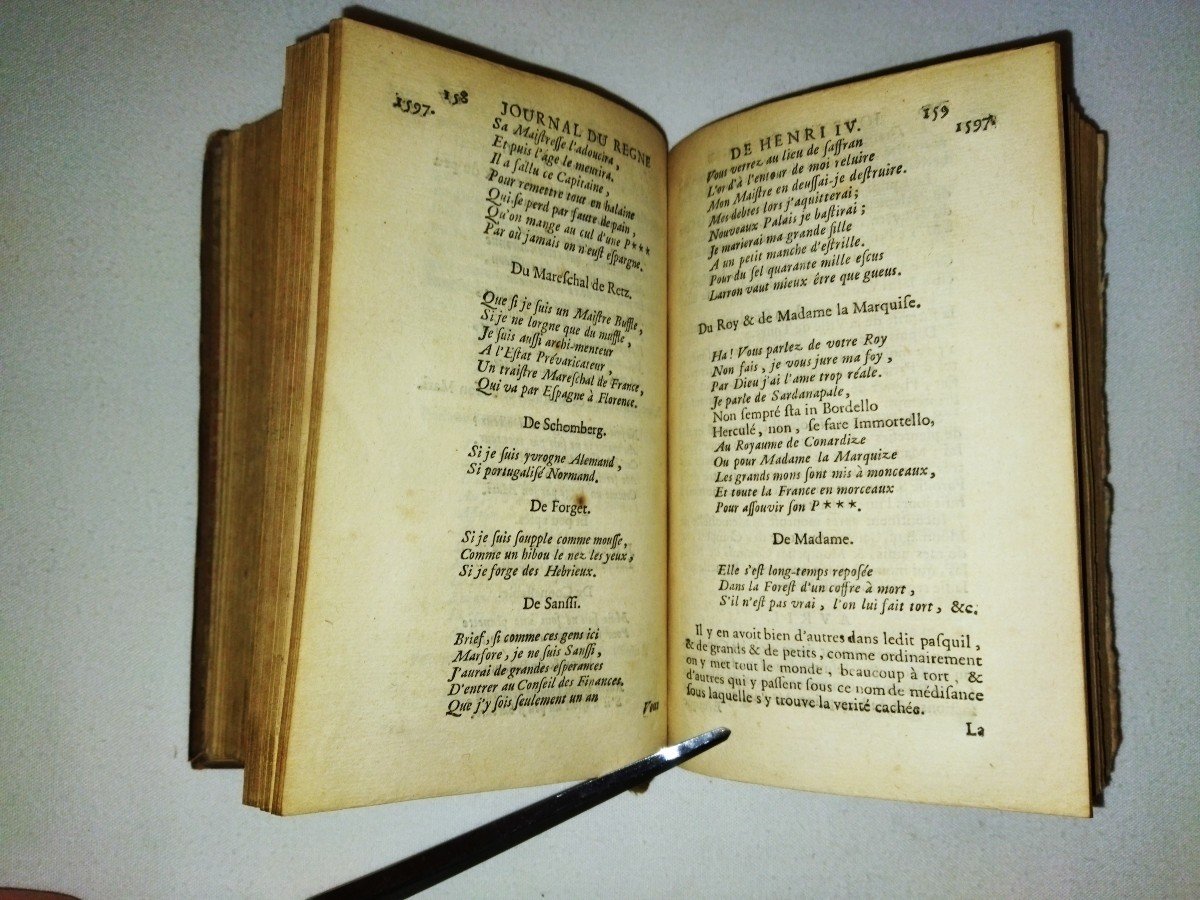 158
1597.
JOURNAL DU REGNE
Sa Maiſtreſſe l'adoucira,
Et puis l'âge le memira.
Il a fallu ce Capitaine,
Pour remettre tout en halaine
Qui ſe perd par faute de pain,
Qu'on mange au cul d'une P***
Par où jamais on n'euſt eſpargne.
Du Mareſchal de Retz.
Que ſi je ſuis un Maiſtre Buffle,
Si je ne lorgne que du muffle,
Je ſuis auſſi archi-menteur
A l'Eſtat Prévaricateur,
Un traiſtre Mareſchal de France,
Qui va par Eſpagne à Florence.
De Schomberg.
Si je ſuis yvrogne Alemand,
Si portugaliſé Normand.
De Forget.
Si je ſuis ſoupple comme mouſſe,
Comme un hibou le nez les yeux;
Si je forge des Hebrieux.
De Sanſſi.
Brief, ſi comme ces gens ici
Marfore, je ne ſuis Sanſſi,
J'aurai de grandes eſperances
D'entrer au Conſeil des Finances.
Que j'y ſois ſeulement un an
Vous
159
1597.
DE HENRI IV.
Vous verrez au lieu de ſaffran
L'or d'à l'entour de moi reluire
Mon Maiſtre en deuſſai-je deſtruire.
Mes debtes lors j'aquitterai;
Nouveaux Palais je baſtirai;
Je marierai ma grande fille
A un petit manche d'eſtrille.
Pour du ſel quarante mille eſcus
Larron vaut mieux être que gueus.
Du Roy & de Madame la Marquiſe.
Ha! Vous parlez de votre Roy
Non fais, je vous jure ma foy,
Par Dieu j'ai l'ame trop réale.
Je parle de Sardanapale,
Non ſempré ſta in Bordello
Herculé, non, ſe fare Immortello,
Au Royaume de Conardize
Ou pour Madame la Marquize
Les grands mons ſont mis à monceaux,
Et toute la France en morceaux
Pour aſſouvir ſon P***.
De Madame.
Elle s'eſt long-temps repoſée
Dans la Foreſt d'un coffre à mort,
S'il n'eſt pas vrai, l'on lui fait tort, &c.
Il y en avoit bien d'autres dans ledit paſquil,
& de grands & de petits, comme ordinairement
on y met tout le monde, beaucoup à tort, &
d'autres qui y paſſent ſous ce nom de médiſance
ſous laquelle s'y trouve la verité cachés.
La